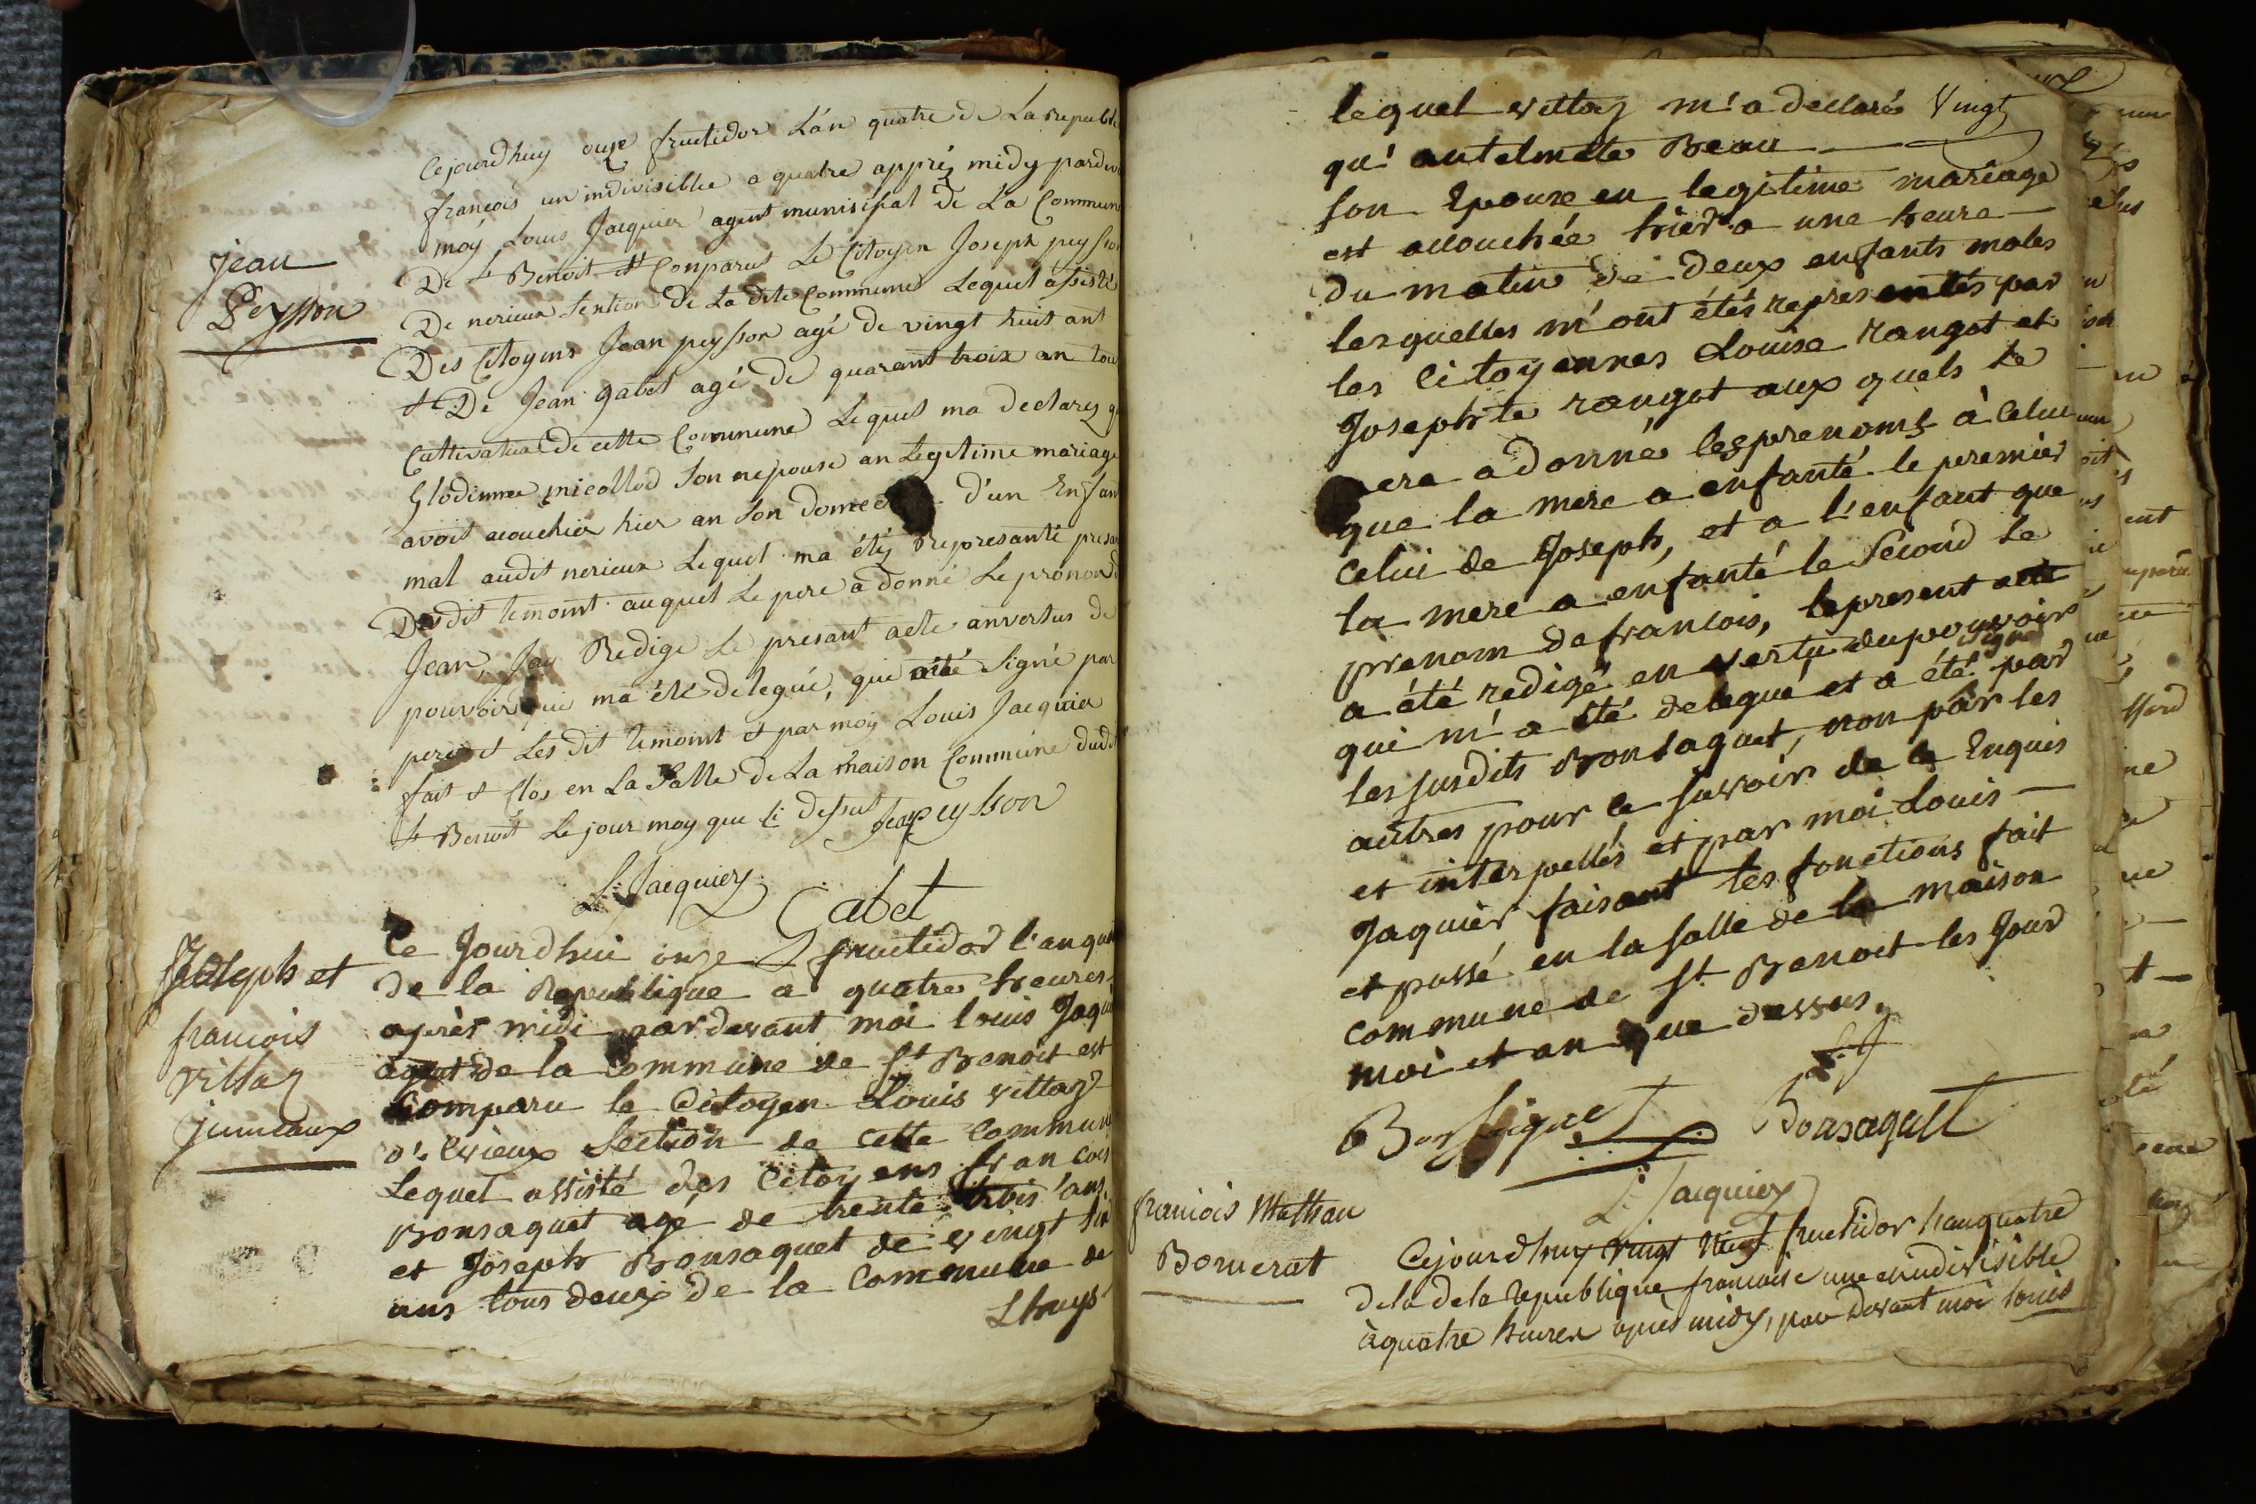 Cejourdhuy onze fructidor L'an quatre de La republi
francois un indivisible a quatre apprés midy pardev
moy Louis Jacquier agent munisipal de La Commun
De St Benoit et Comparus Le Citoyen Joseph peysson
De nerieux Section de La dite Commune Lequel assisté
Des Citoyens Jean peysson agé de vingt huit ant
et De Jean gabet agé de quarant troix an tou
Cultivateur de cette Commune Lequel ma declarez q
Glodinnee micollod son nepouse an Legitime mariage
avoit acouchier hier an son d'un Enfan
mal audit nerieux Lequel ma étéz Represanté presan
Desdit temoint auquel Le pere a donné Le prenon d
Jean, Jay Redige Le presant acte anvertus de
pouvoir qui ma été delegué, qui aité Signé par
pere et Les dit temoint et par moy Louis Jacquier
fait et Clos en La Salle de La maison Commune dudi
St Benoit Le jour moy que ci dessus Jeapeysson
L: Jacquiez
Gabet
jean
Peysson
Ce Jourdhui onze fructidor l'an qua
de la Republique a quatre heures
après midi pardevant moi louis Jaqu
agent de la Commune de St Benoit est
Comparu le Citoyen Louis vittoz
d'Evieux Section de cette Commun
Lequel assisté des Citoyens francois
Bonsaquet agé de trente trois ans
et Joseph Bonsaquet de vingt six
ans tous deux de la Commune de
Lhuys
Joseph et
francois
vittoz
jumeaux
lequel vittoz m'a declaré Vingt
qu'autelmete Beau
son Epouse en legitime mariage
est accouchée hier a une heure
du matin de deux enfants males
lesquelles m'ont étés representés par
les Citoyennes Louise rangot et
Josephte rangot aux quels le
pere a donné les prenoms à Celui
que la mere a enfanté le peremier
celui de Joseph, et a l'enfant que
la mere a enfanté le Second le
prenom de francois, le present acte
a été redigé en vertu du pouvoir
qui m'a été delegué et a été signé par
les susdits Bonsaquet, non par les
autres pour le savoir de ce Enquis
et interpellés et par moi Louis
Jaquier faisant les fonctions fait
et passé en la salle de la maison
commune de St Benoit les Jour
moi et an que dessus.
L J
Bonsaquet Bonsaquet
L: Jacquiez
francois Mathan
Bomerat
Cejourdhuy vingt neuf fructidor l'an quatre
de la de la republique francoise une et indivisible
à quatre heures après midy, par devant moi louis